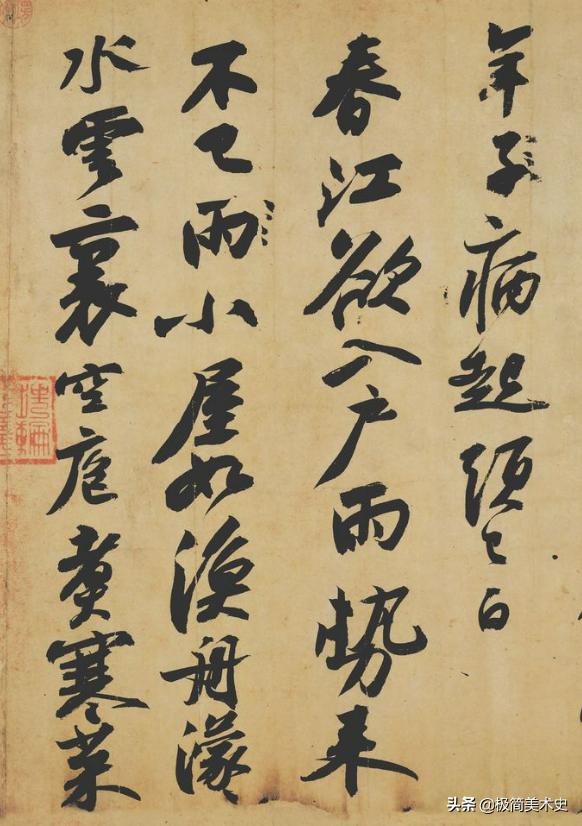 年子病起頭已白
春江欲入户雨勢来
不已雨小屋如漁舟濛〻
水雲裏空庖煑寒菜
头条 @极简美术史